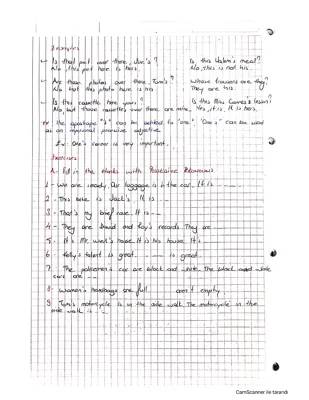 Examples
- Is that pot over there, Joe's?
No, this pot here is hers.
Is this Helen's meal?
No, this is not his.
- Are those photos over there, Tom's?
No but this photo here is his
Whose trousers are they?
They are his.
Is this cassette here yours?
No, but those cassettes over there are mine.
Is this Mrs lesson?
Yes, it is. It is hers.
the apostrophe "s" can be added to "one". "One's" can be used
as an impersonal possessive adjective.
Ex: One's career is very important.
Exercises
A- Fill in the blanks with Possessive Pronouns
1- We are ready. Our luggage is in the car. It is
2- This bike is Jack's. It is
3- That's my brief case. It is
4- They are David and Fay's records. They are
5- It is Mr. West's house. It is his house. It is
6- Kelly's talent is great. is great.
7- The policemen's car are black and white. The black and white
cars are
8- Women's handbags are full. aren't empty.
9- Tom's motorcycle is in the side walk. The motorcycle in the
side walk is
CamScanner ile tarandı